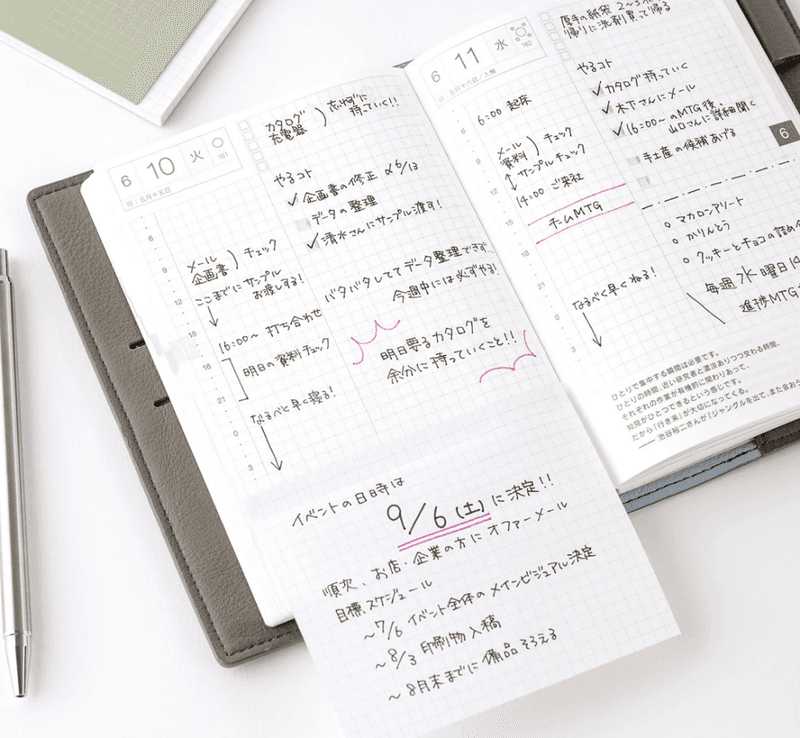 6 10 火
161
旧:五月十五日
カタログ
充電器
忘れずに
持っていく!!
やるコト
企画書の修正 〆6/13
データの整理
清水さんにサンプル渡す!
6
9
12
15
18
21
0
3
メール
企画書
チェック
ここまでにサンプル
お渡しする!
16:00~ 打ち合わせ
明日の資料チェック
なるべく早く寝る!
バタバタしててデータ整理できず。
今週中には必ずやる!
明日要るカタログを
余分に持っていくこと!!
イベントの日時は
9/6(土)に決定!!
順次、お店・企業の方にオファーメール
目標スケジュール
~7/6 イベント全体のメインビジュアル決定
~8/3 印刷物入稿
~8月末までに備品そろえる
6 11 水
162
旧:五月十六日/入梅
厚手の紙袋 2~3
帰りに洗剤買って帰る
やるコト
カタログ持っていく
木下さんにメール
16:00~のMTG後、
山口さんに詳細聞く
手土産の候補あげる
6
6
9
12
15
18
21
0
3
6:00 起床
メール
資料
チェック
サンプルチェック
14:00 ご来社
チームMTG
なるべく早くねる!
マカロンアソート
かりんとう
クッキーとチョコの詰め
毎週水曜日
進捗MTG
ひとりで集中する瞬間は必要です。
ひとりの時間、近い研究者と意見ありつつ交わる時間、
それぞれの作業が有機的に関わりあって、
知見がひとつできるという感じです。
だから「行き来」が大切になってくる。
池谷裕二さんが『ジャングルを出て、また会おう